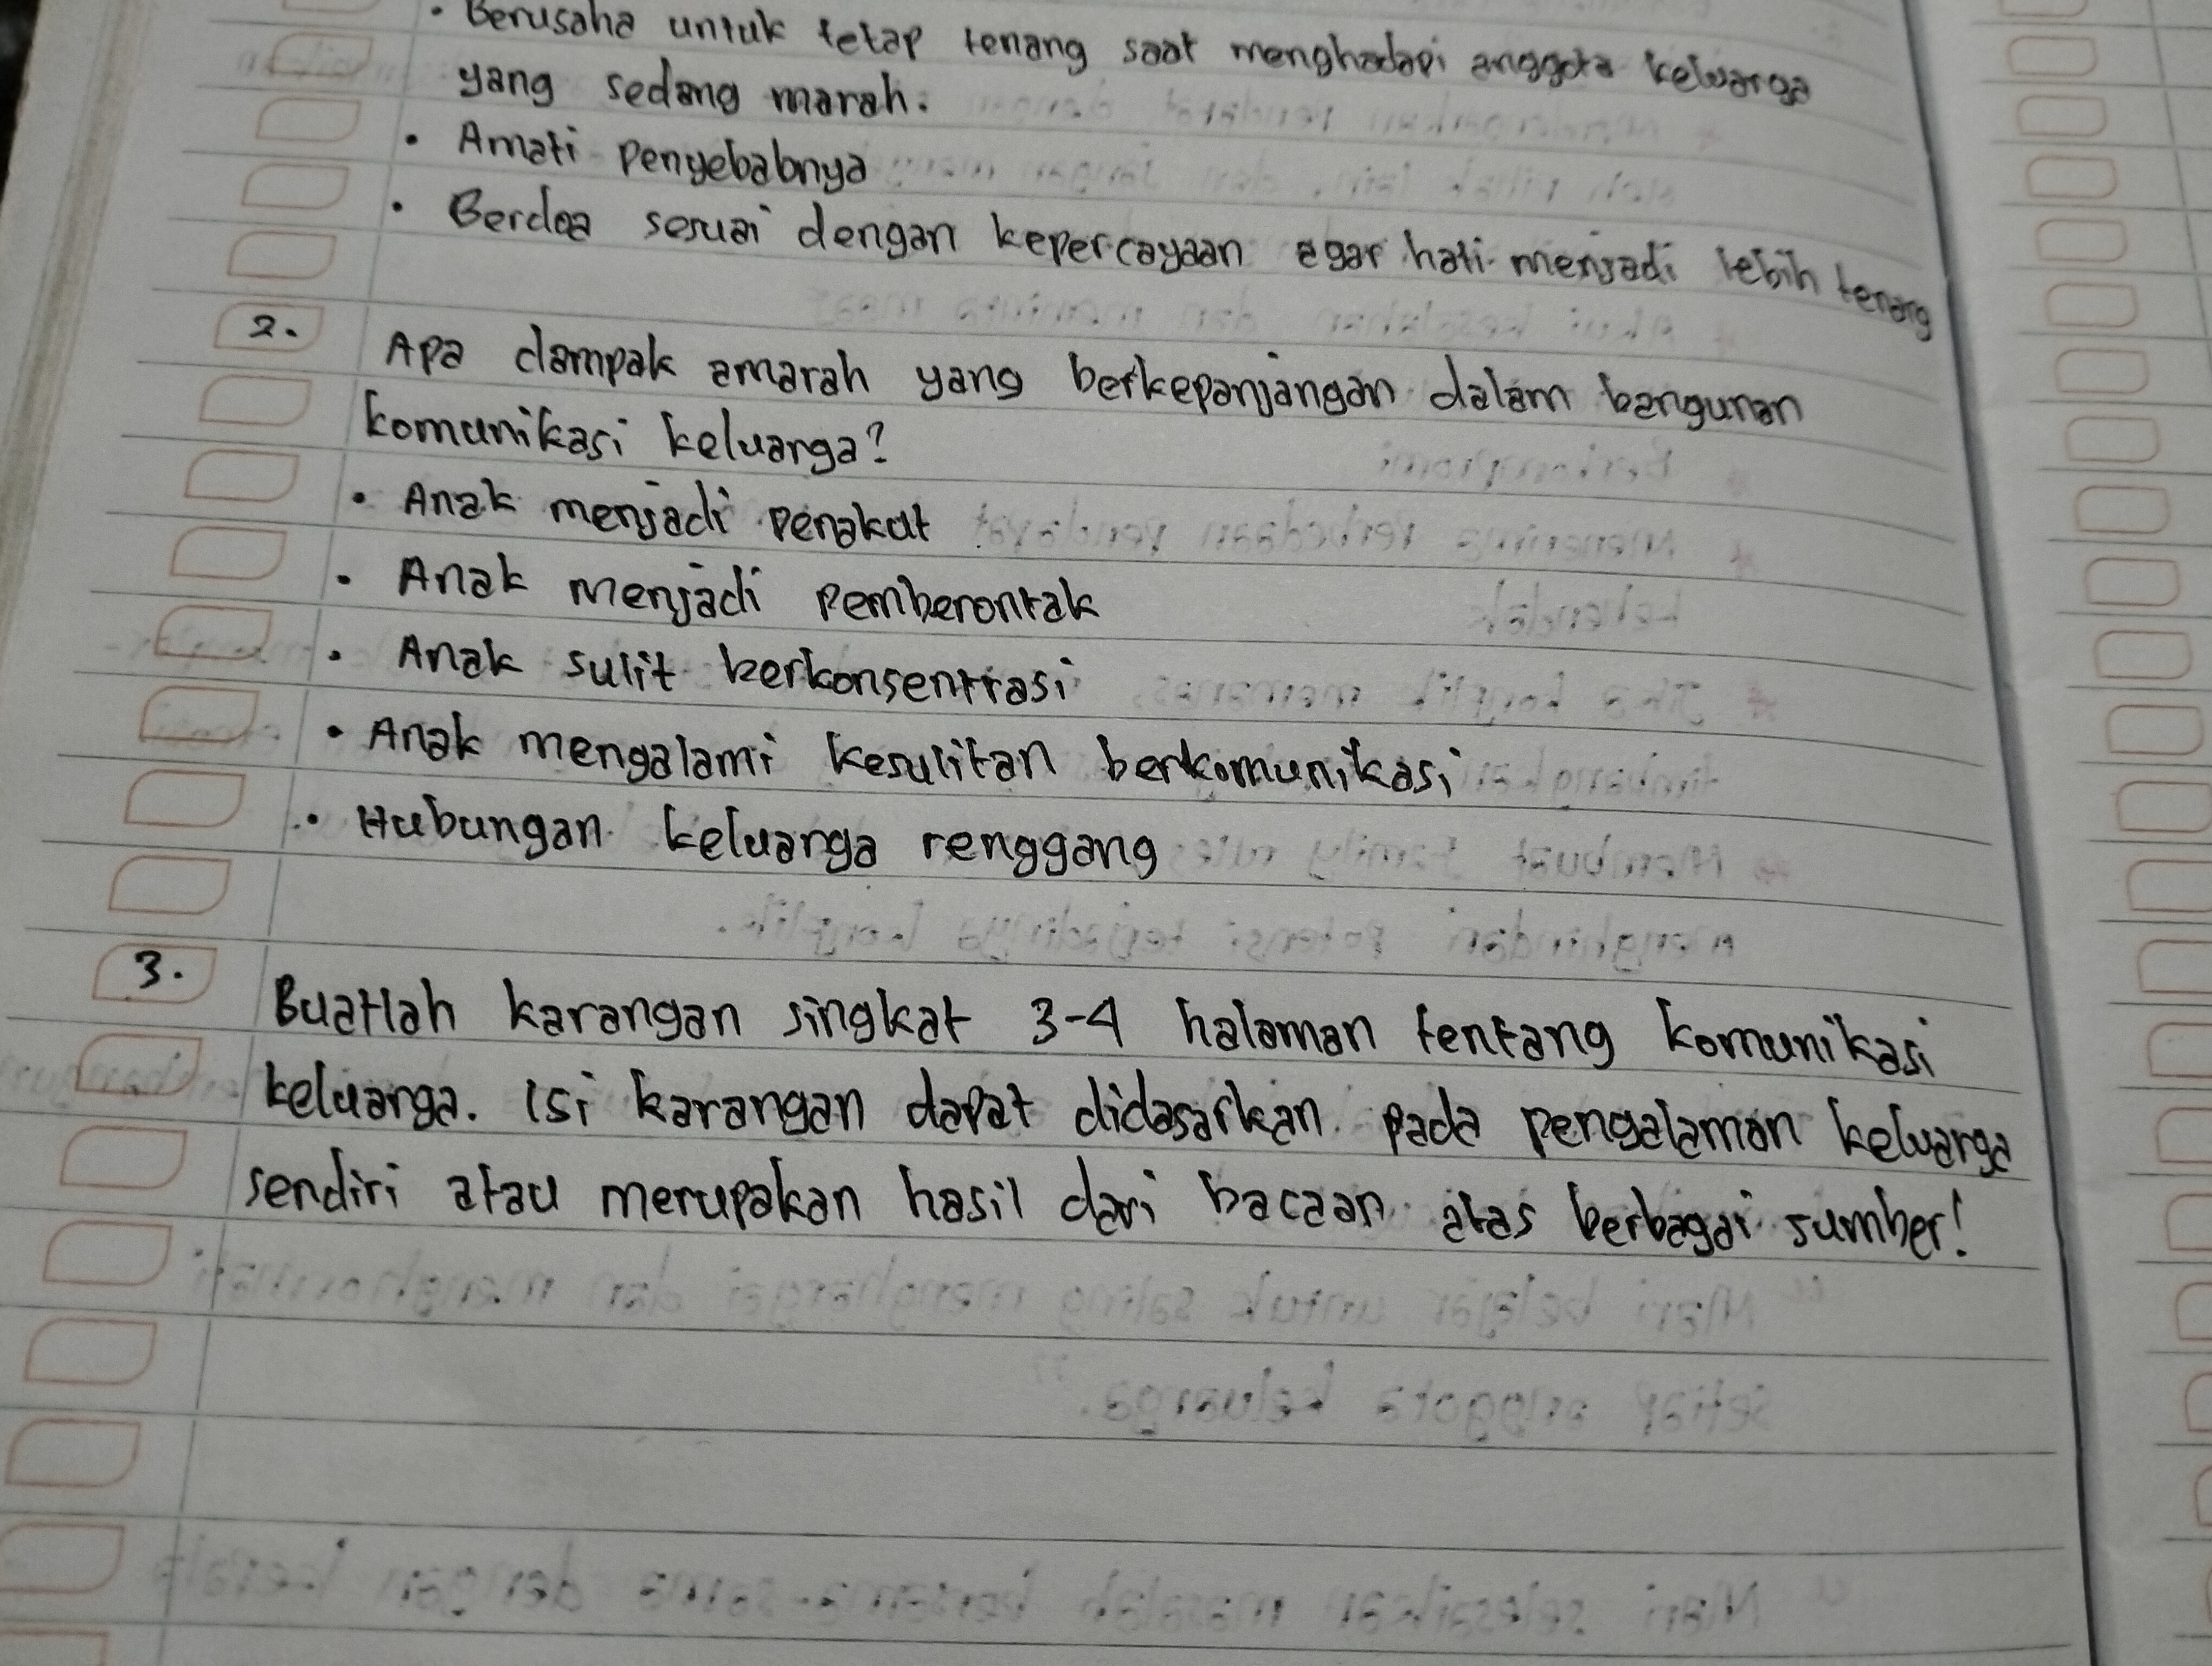 • Berusaha untuk tetap tenang saat menghadapi anggota keluarga
yang sedang marah.
• Amati penyebabnya
• Berdoa sesuai dengan kepercayaan agar hati menjadi lebih tenang
2. Apa dampak amarah yang berkepanjangan dalam bangunan
komunikasi keluarga?
• Anak menjadi penakut
• Anak menjadi pemberontak
• Anak sulit berkonsentrasi
• Anak mengalami kesulitan berkomunikasi
• Hubungan keluarga renggang
3. Buatlah karangan singkat 3-4 halaman tentang komunikasi
keluarga. Isi karangan dapat didasarkan pada pengalaman keluarga
sendiri atau merupakan hasil dari bacaan atas berbagai sumber!